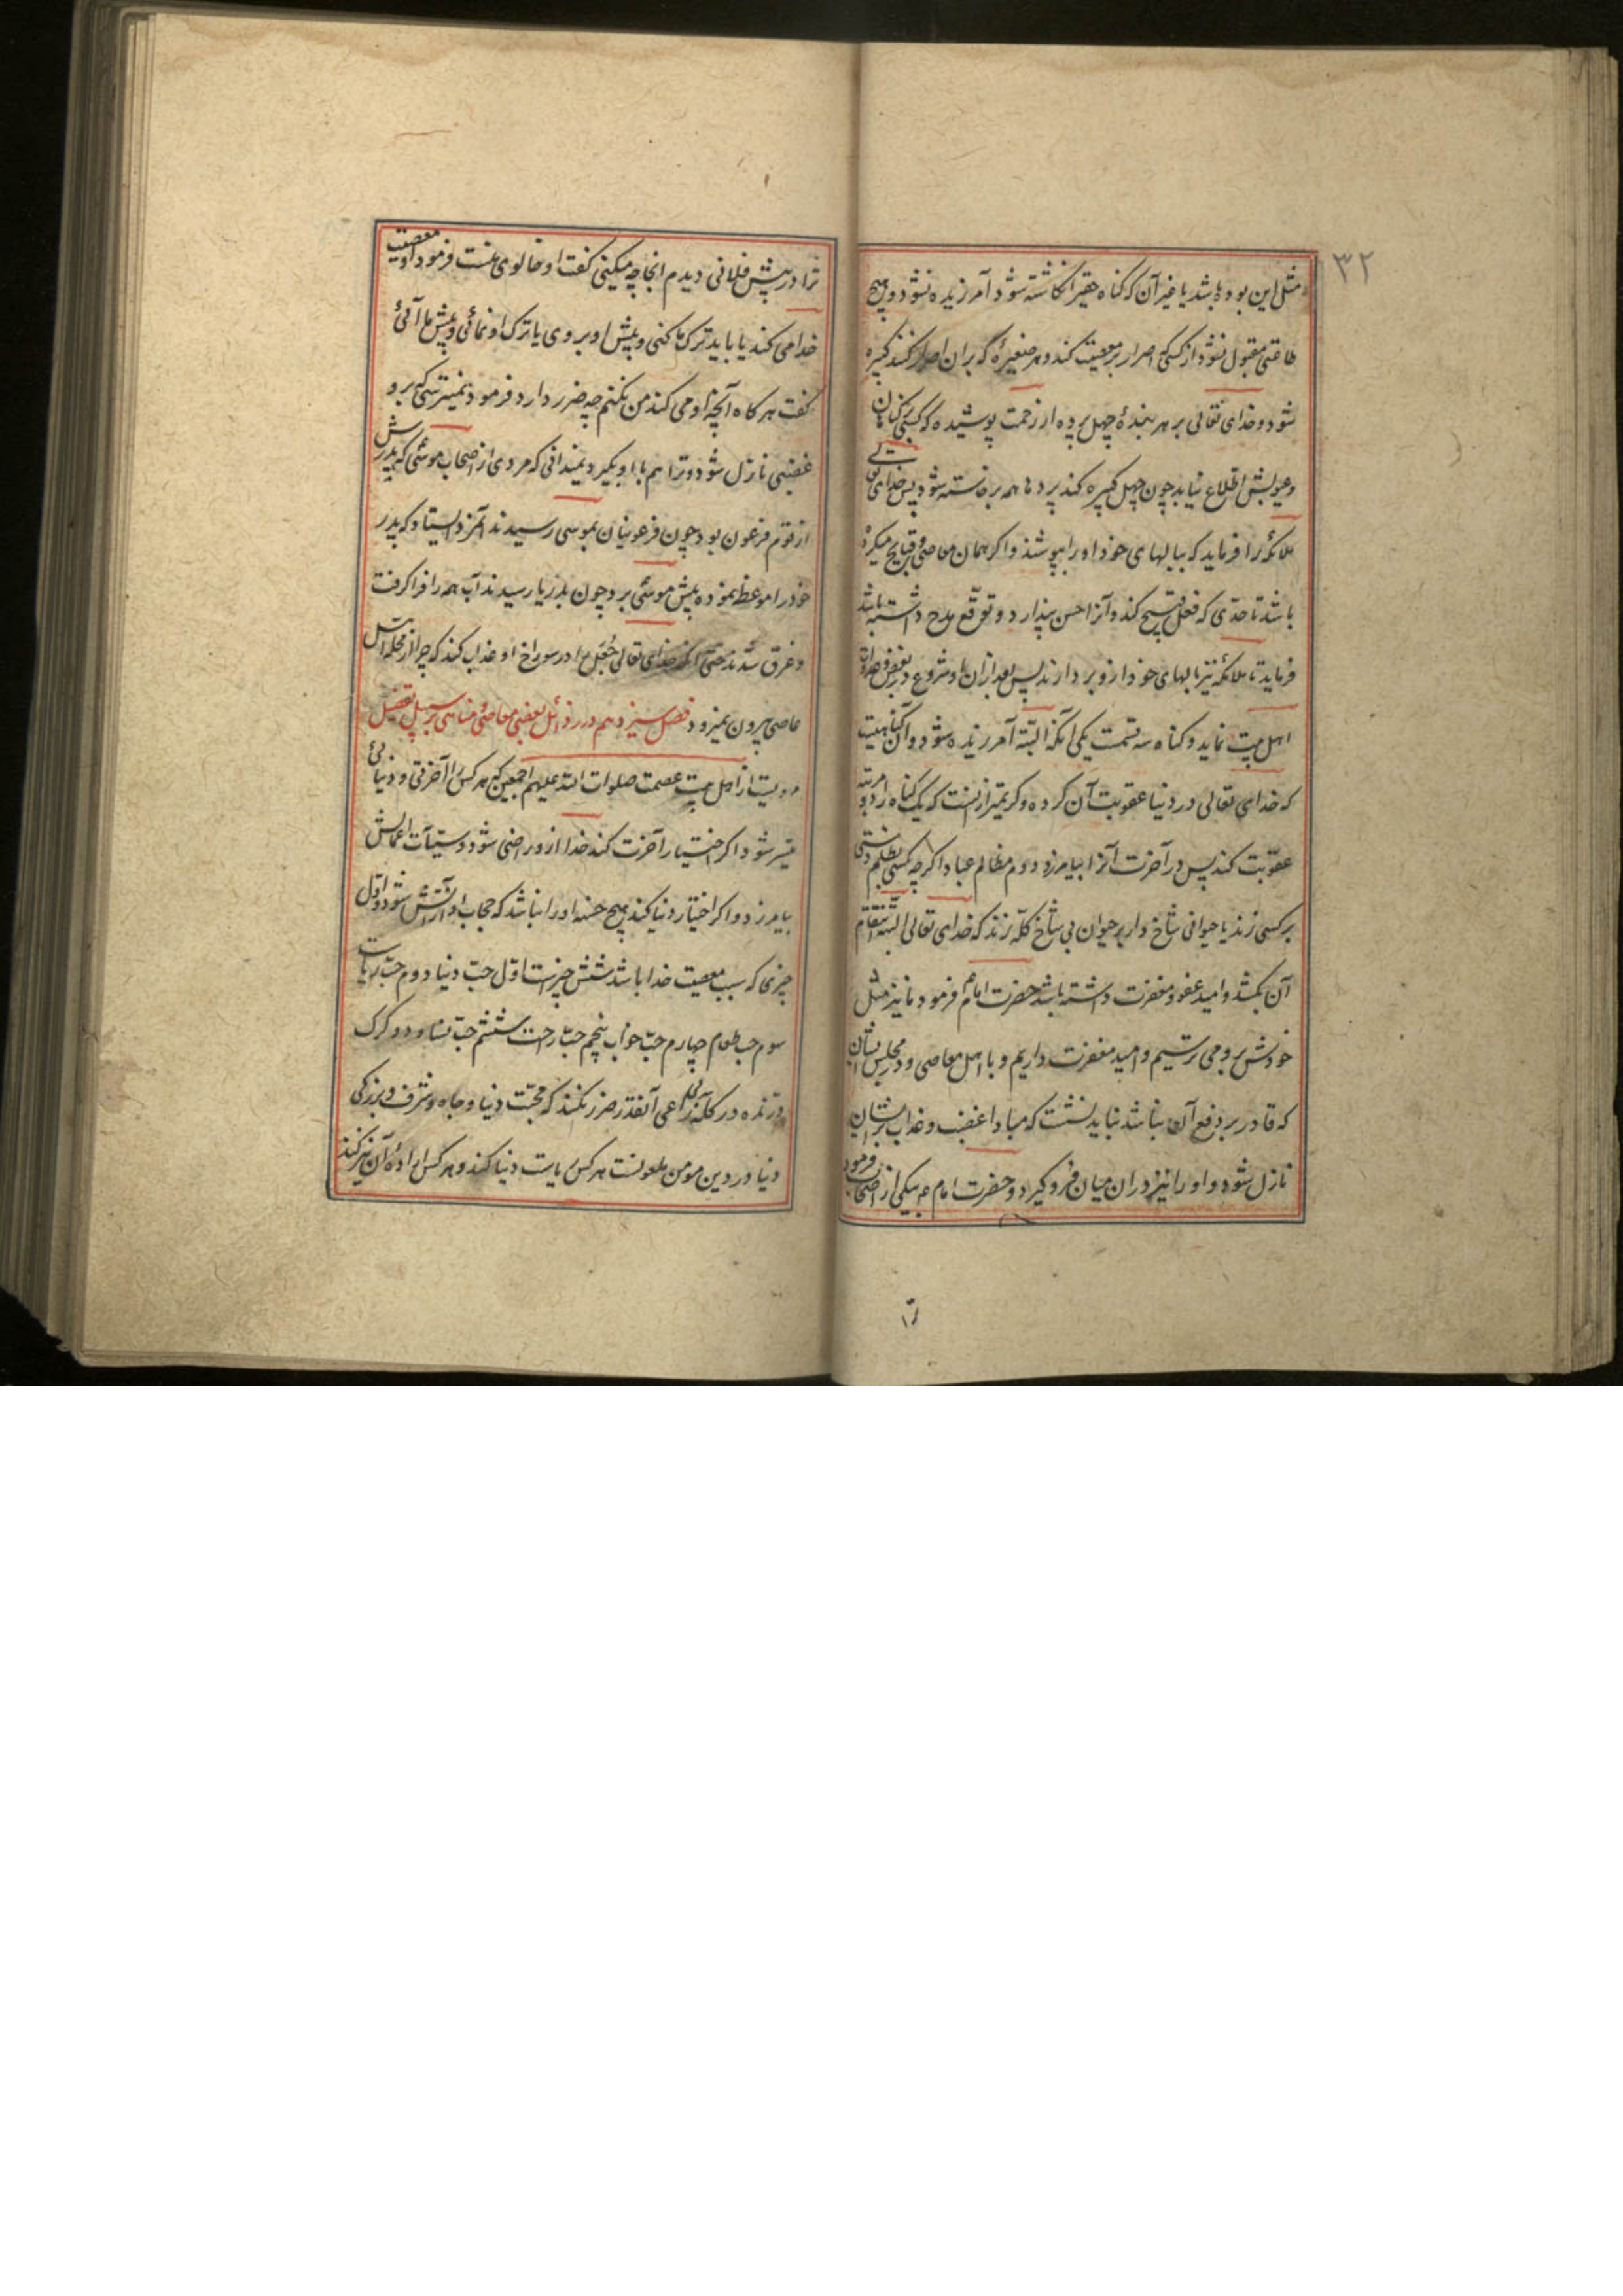 ۳۲
مثل این بوده باشد یا غیر آن که کناه حقیر انکاشته شود آمرزیده نشود و هیچ
طاقتی مقبول نشود از کسی که اصرار بر معصیت کند و هر صغیرهٔ که بران اصرار کند کبیره
شود و خدای تعالی بر هر بندهٔ چهل پرده از رحمت پوشیده که کسی بر کناهان
و عیوبش اطلاع نیابد چون چهل کبیره کند پرده‌ها همه برخاسته شود پس خدای تعالی
ملائکه را فرماید که ببالهای خود او را بپوشند و اکر همان معاصی و قبایح میکرده
باشد تا حدی که فعل قبیح کند و آنرا احسن پندارد و توقع مدح داشته باشد
فرماید تا ملائکه نیز بالهای خود از و بردارند پس بعد از ان او شروع در بغض و عداوت
اهل بیت نماید و کناه سه قسمت یکی آنکه البته آمرزیده شود و آن کناهیست
که خدای تعالی در دنیا عقوبت آن کرده و کریمتر از نست که یک کناه را دو مرتبه
عقوبت کند پس در آخرت آنرا بیامرزد دوم مظالم عباد اکر چه کسی بظلم دستی
بر کسی زند یا حیوانی شاخ دار بر حیوان بی شاخ کله زند که خدای تعالی البته انتقام
آن بکشد و امید عفو و مغفرت داشته باشد حضرت امام فرمود ما نیز مثل
خودش برو می ترسیم و امید مغفرت داریم و با اهل معاصی و در مجلس ایشان
که قادر بر دفع آن نباشد نباید نشست که مبادا غضب و عذاب بر ایشان
نازل شود و او را نیز در ان میان فرو کیرد و حضرت امام ع بیکی از اصحاب فرمود
ترا
ترا در پیش فلانی دیدم انجا چه میکینی کفت او خالوی منست فرمود او معصیت
خدا می کند یا باید ترک ما کنی و پیش او بروی یا ترک او نمائی و پیش ما آئی
کفت هر کاه آنچه او می کند من نکنم چه ضرر دارد فرمود نمیترسی که برو
غضبی نازل شود و ترا هم با او بکیرد نمیدانی که مردی از اصحاب موسی که پدرش
از قوم فرعون بود چون فرعونیان بموسی رسیدند آنمرد ایستاد که پدر
خود را موعظه نموده پیش موسی برد چون بدریا رسیدند آب همه را فرا کرفت
و غرق شدند حتی آنکه خدای تعالی جعل را در سوراخ او عذاب کند که چرا از محله اهل
عاصی بیرون نمیرود فصل سیزدهم در رذائل بعضی معاصی و مناهی بر سبیل تفصیل
مرویست از اهل بیت عصمت صلوات الله علیهم اجمعین که هر کس را آخرتی و دنیائی
میسر شود اکر اختیار آخرت کند خدا از و راضی شود و سیئات اعمالش
بیامرزد و اکر اختیار دنیا کند هیچ حسنه او را نباشد که حجاب او از آتش شود و اول
چیزها که سبب معصیت خدا باشد شش چیزست اول حب دنیا دوم حب ریاست
سوم حب طعام چهارم حب خواب پنجم حب راحت ششم حب نسا و دو کرک
درنده در کله بی راعی آنقدر ضرر نکند که محبت دنیا و جاه و شرف و بزرکی
دنیا در دین مومن ملعونست هر کس ریاست دنیا کند و هر کس ارادهٔ آن نیز کند